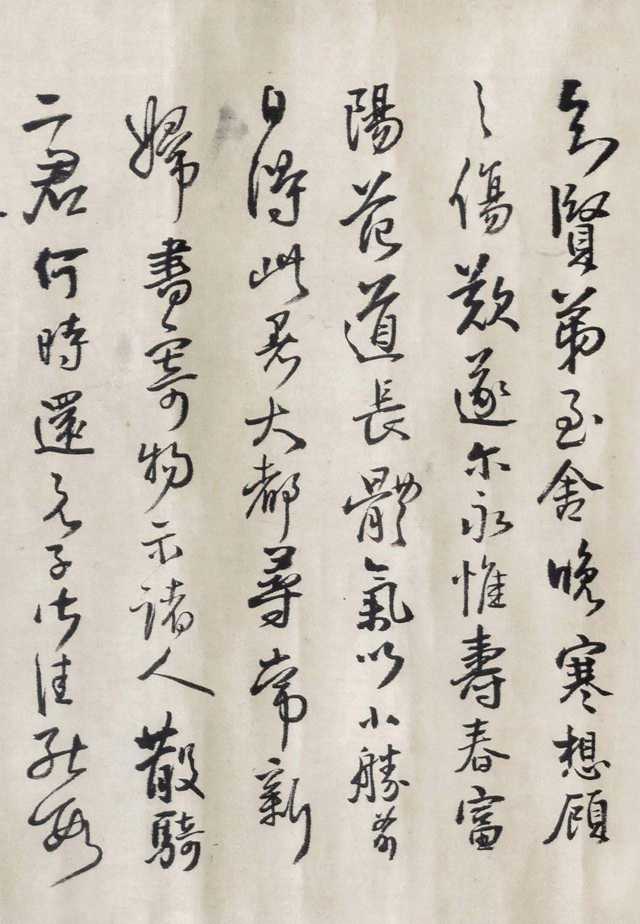 知賢弟至舍晚寒想顧
之傷歎遂尔永惟壽春富
陽范道長體氣以小勝前
日得此君大都尋常新
婦書寄物示諸人散騎
二君何時還兄子告佳